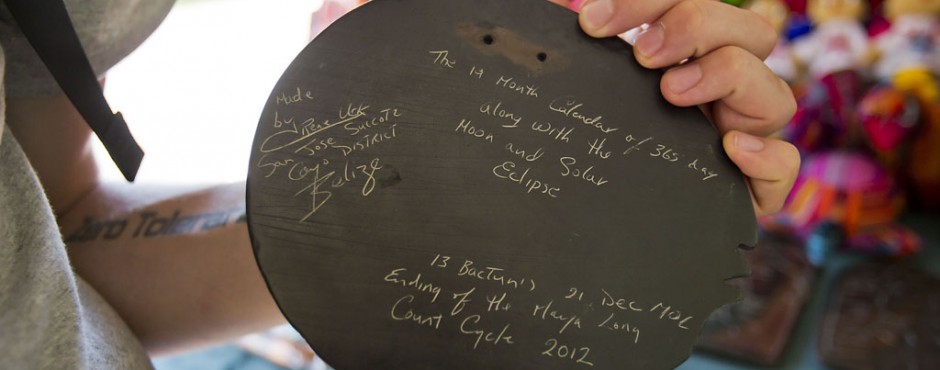 Made
by
Rene Uck
San Jose Succotz
Cayo DISTRICT
Belize
The 19 Month Calendar of 365 day
along with the
Moon and Solar
Eclipse
13 Bactunis 21 DEC MOL
Ending of the Maya Long
Count Cycle 2012
Zero Toleran